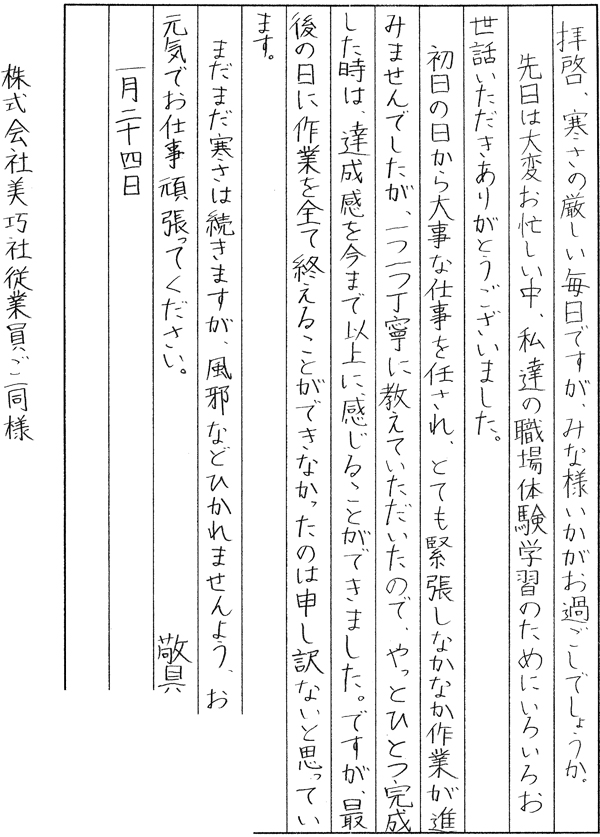 拝啓、寒さの厳しい毎日ですが、みな様いかがお過ごしでしょうか。
先日は大変お忙しい中、私達の職場体験学習のためにいろいろお
世話いただきありがとうございました。
初日の日から大事な仕事を任され、とても緊張しなかなか作業が進
みませんでしたが、一つ一つ丁寧に教えていただいたので、やっとひとつ完成
した時は、達成感を今まで以上に感じることができました。ですが、最
後の日に作業を全て終えることができなかったのは申し訳ないと思ってい
ます。
まだまだ寒さは続きますが、風邪などひかれませんよう、お
元気でお仕事頑張ってください。
敬具
一月二十四日
株式会社美巧社従業員ご一同様